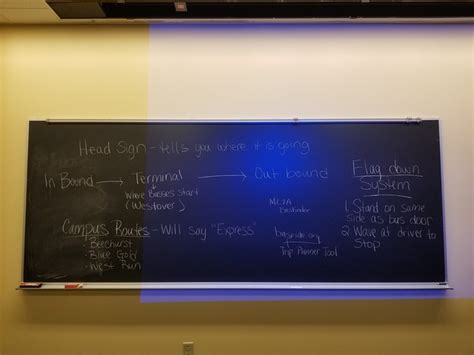 Head Sign - tells you where it is going
In Bound → Terminal → Out bound
where Busses Start
(Westover)
Campus Routes - Will say "Express"
• Beechurst
• Blue Gold
• West Run
busride.org
Trip Planner Tool
Flag down
System
1 Stand on same
side as bus door
2 Wave at driver to
Stop